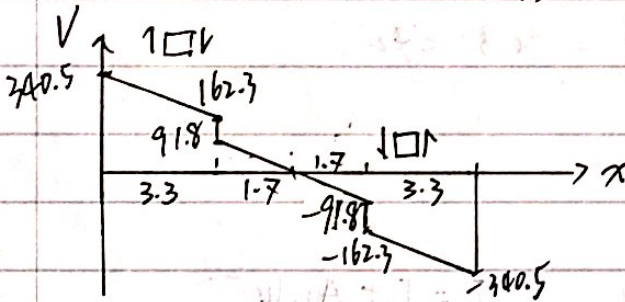 V
340.5
162.3
91.8
1.7
x
3.3 1.7 3.3
-91.8
-162.3
-340.5